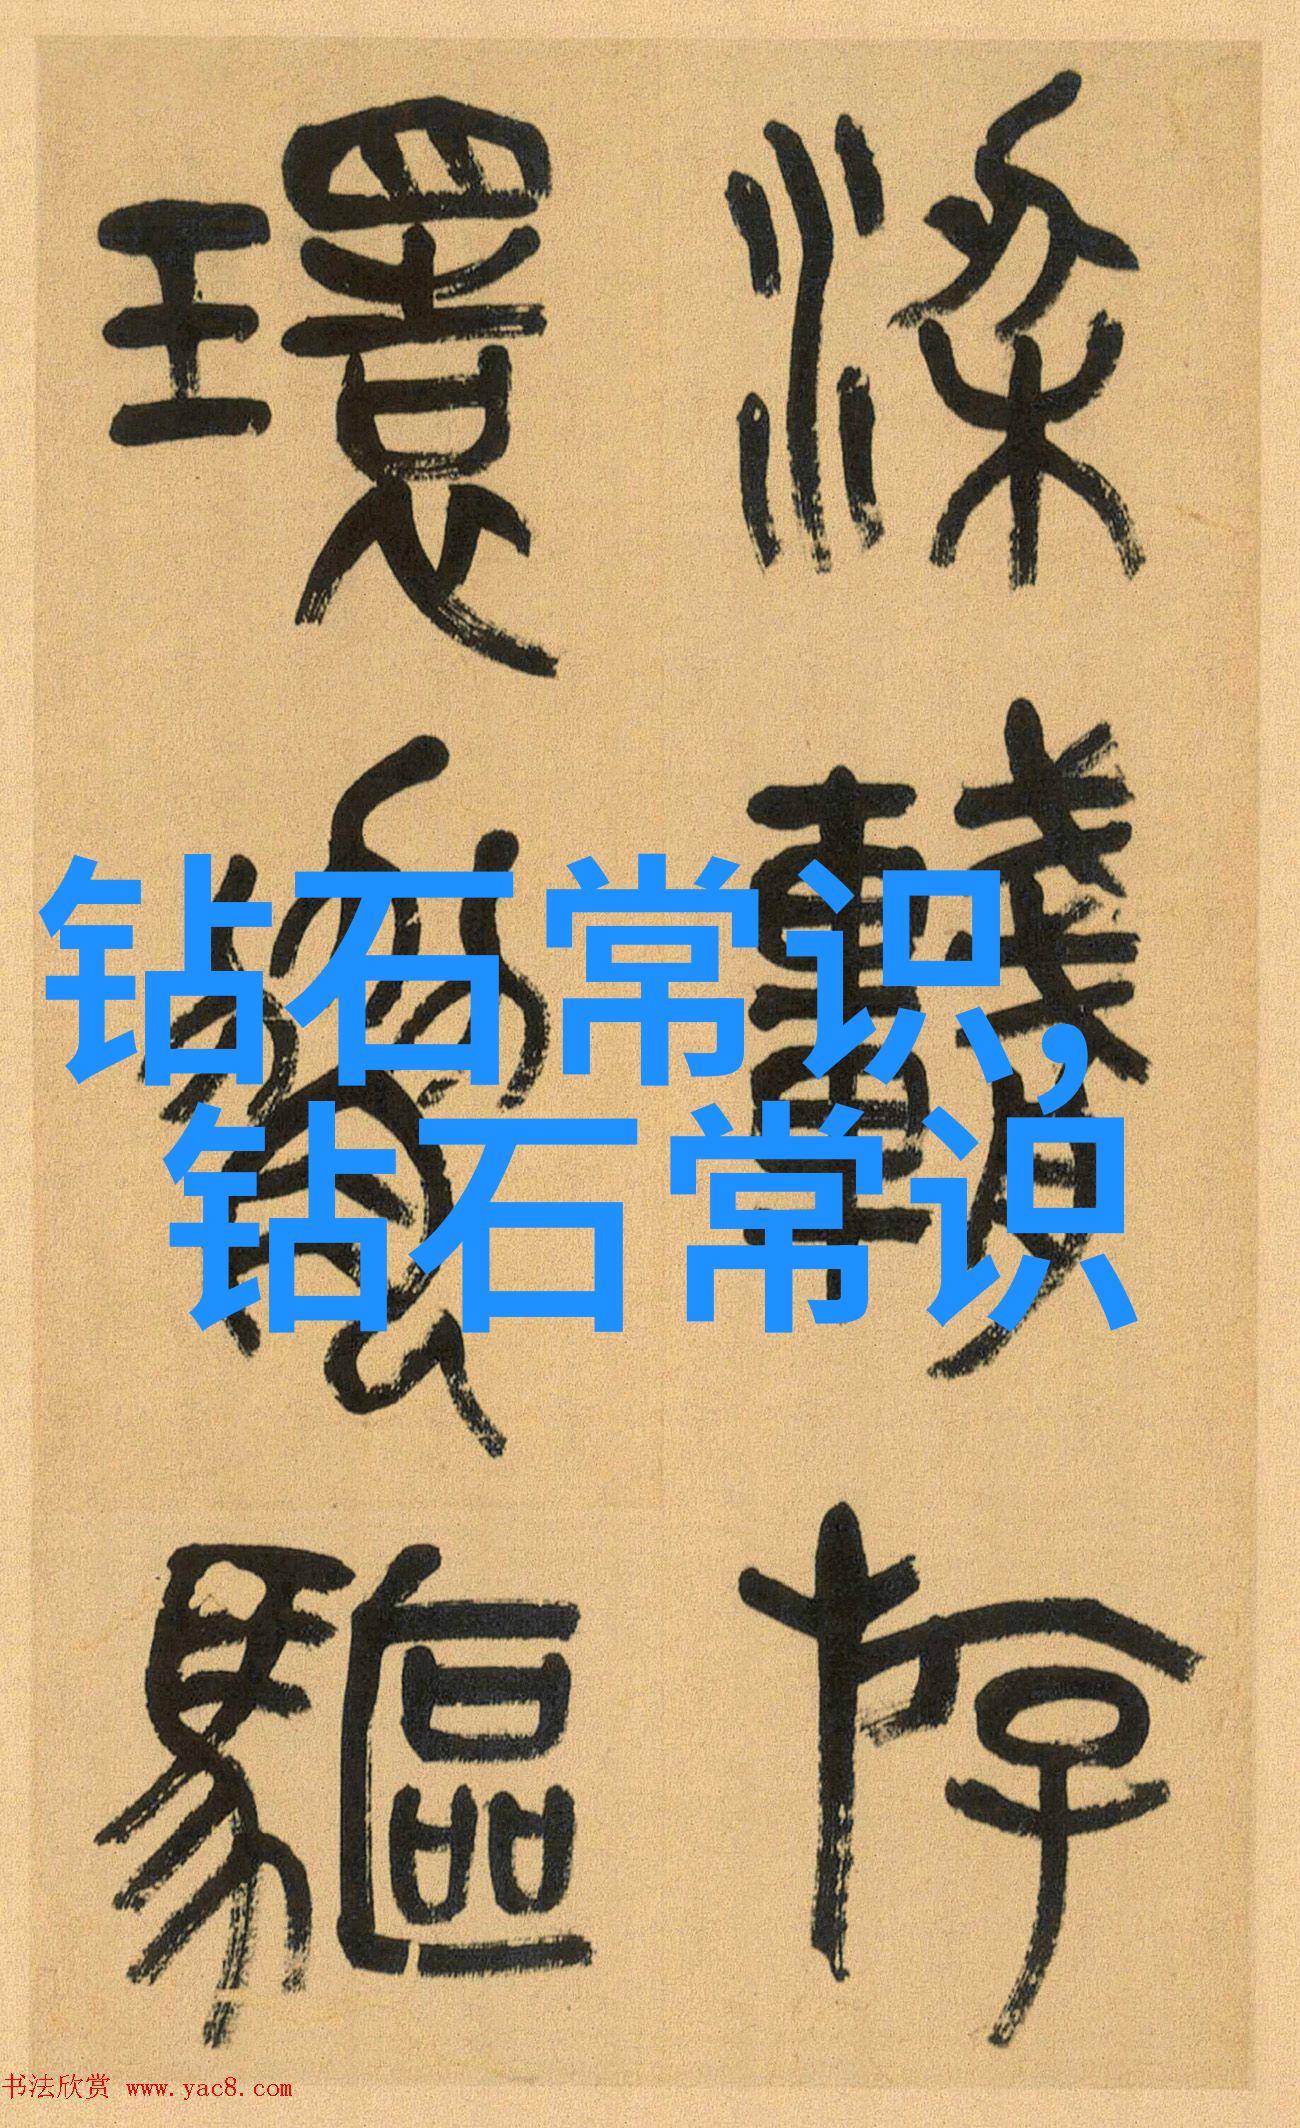 梁輈游
環脅驅
钻石常识,
钻石常识
书法欣赏 www.yac8.com